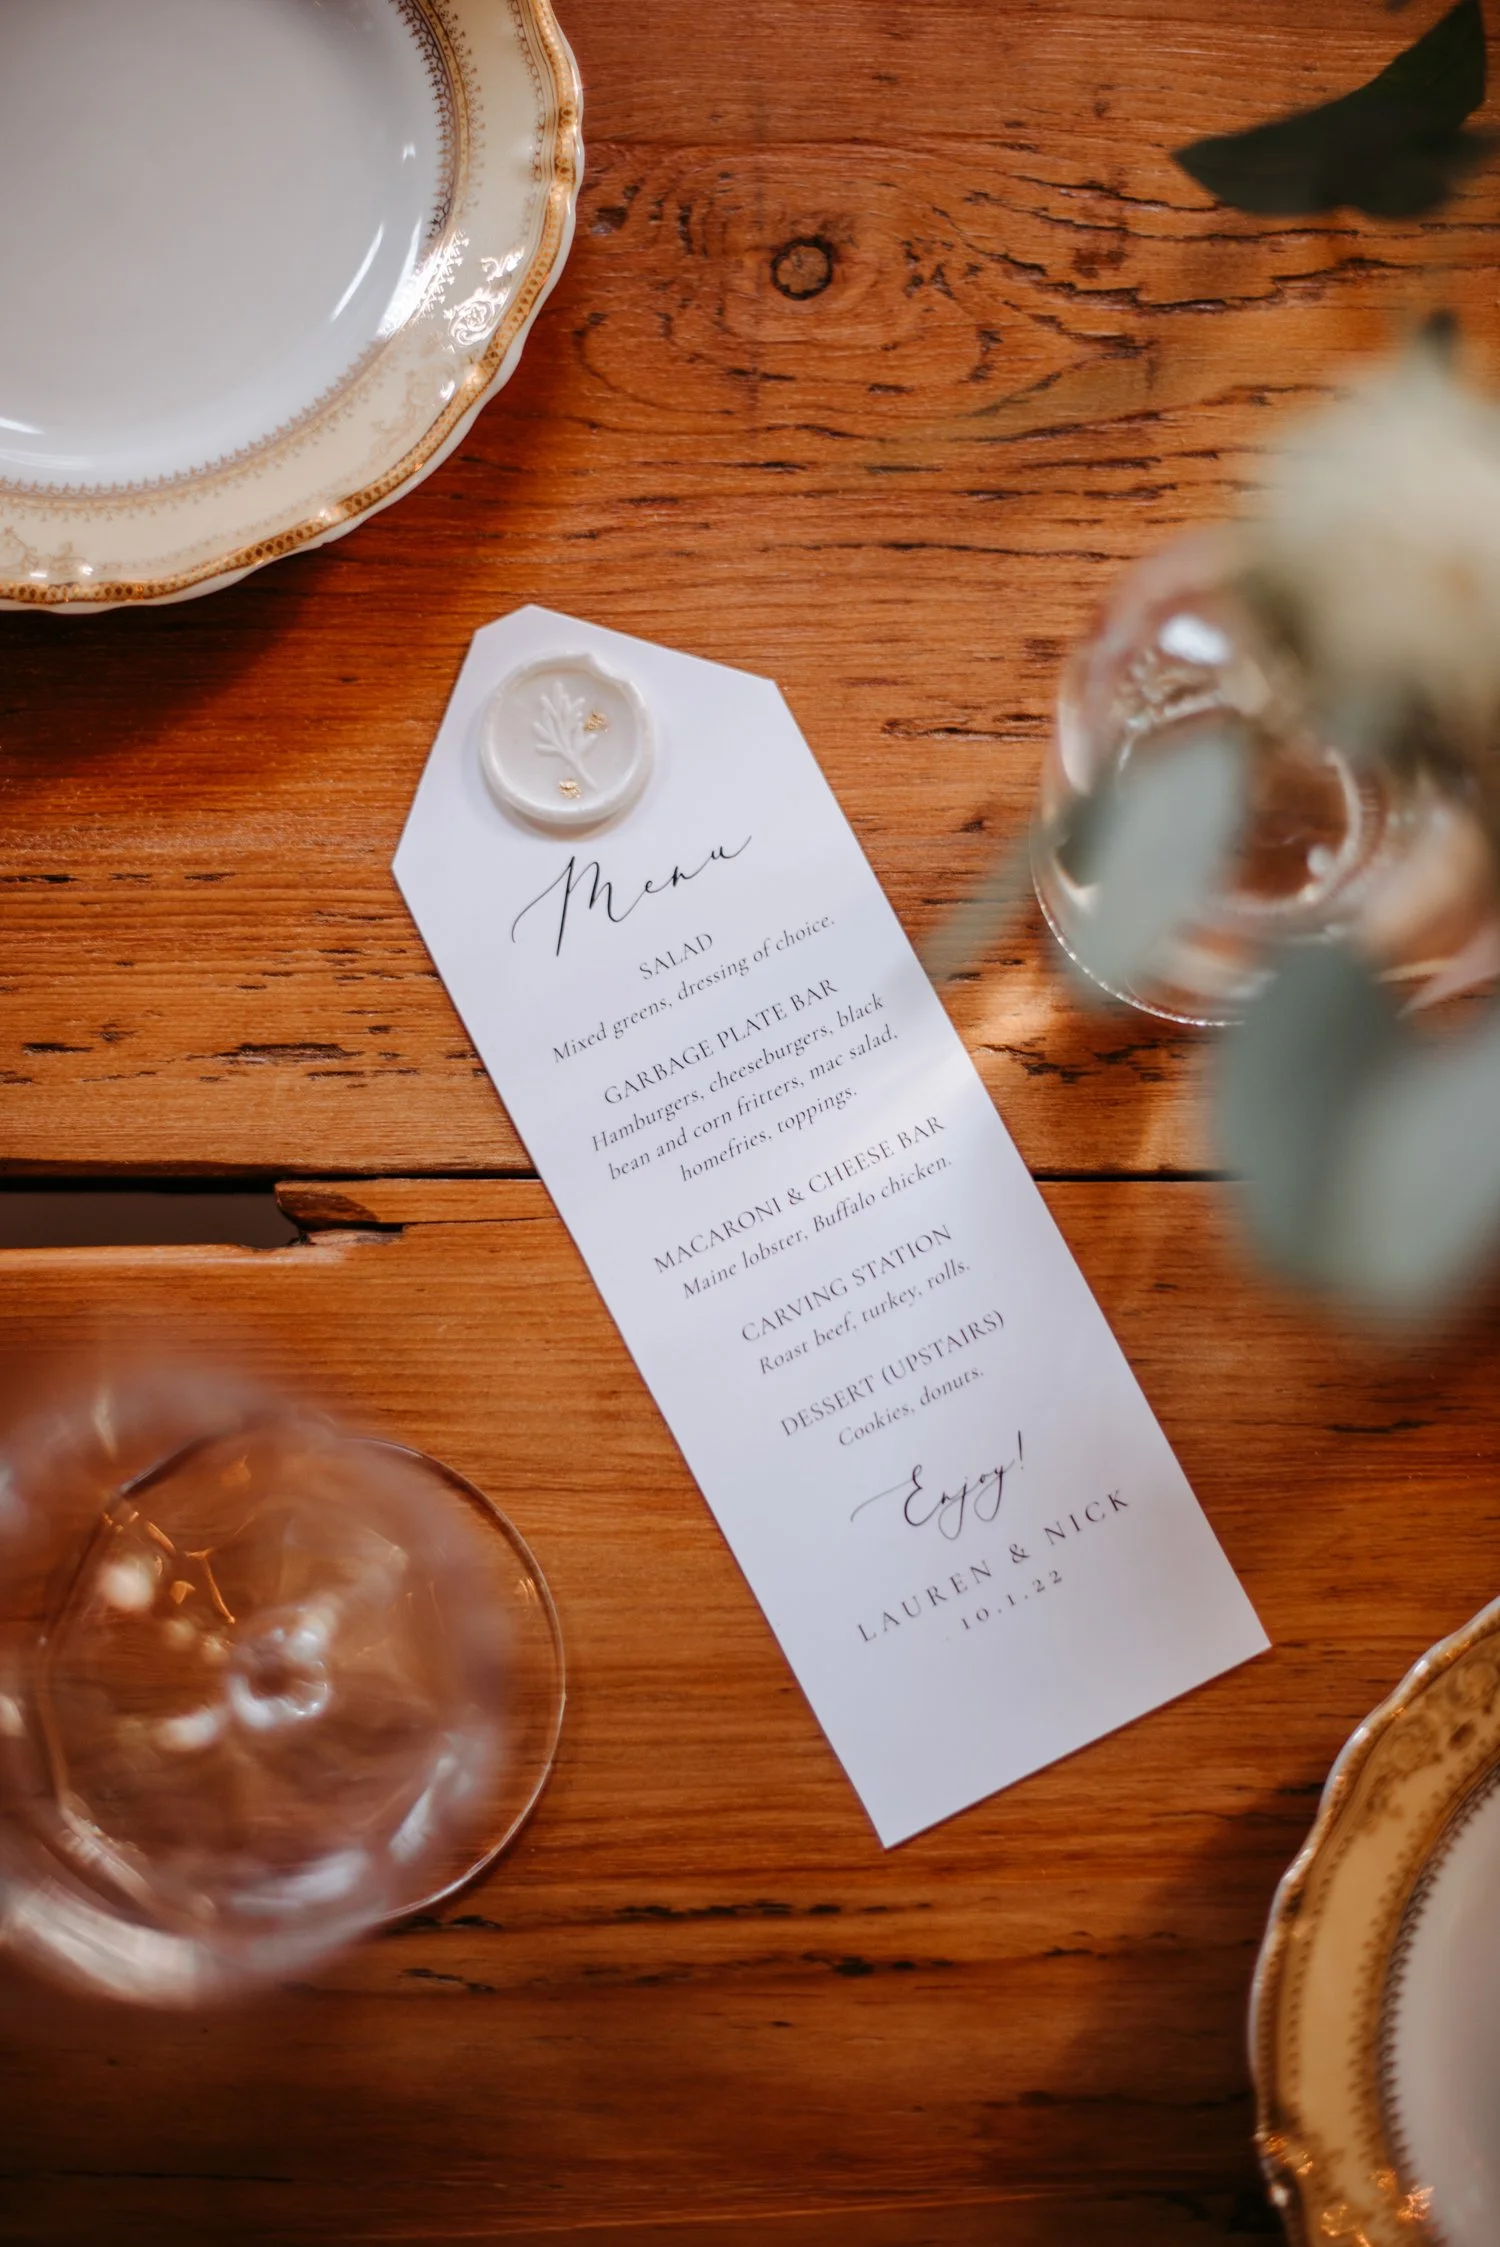 Menu
SALAD
Mixed greens, dressing of choice.
GARBAGE PLATE BAR
Hamburgers, cheeseburgers, black
bean and corn fritters, mac salad,
homefries, toppings.
MACARONI & CHEESE BAR
Maine lobster, Buffalo chicken.
CARVING STATION
Roast beef, turkey, rolls.
DESSERT (UPSTAIRS)
Cookies, donuts.
Enjoy!
LAUREN & NICK
10.1.22